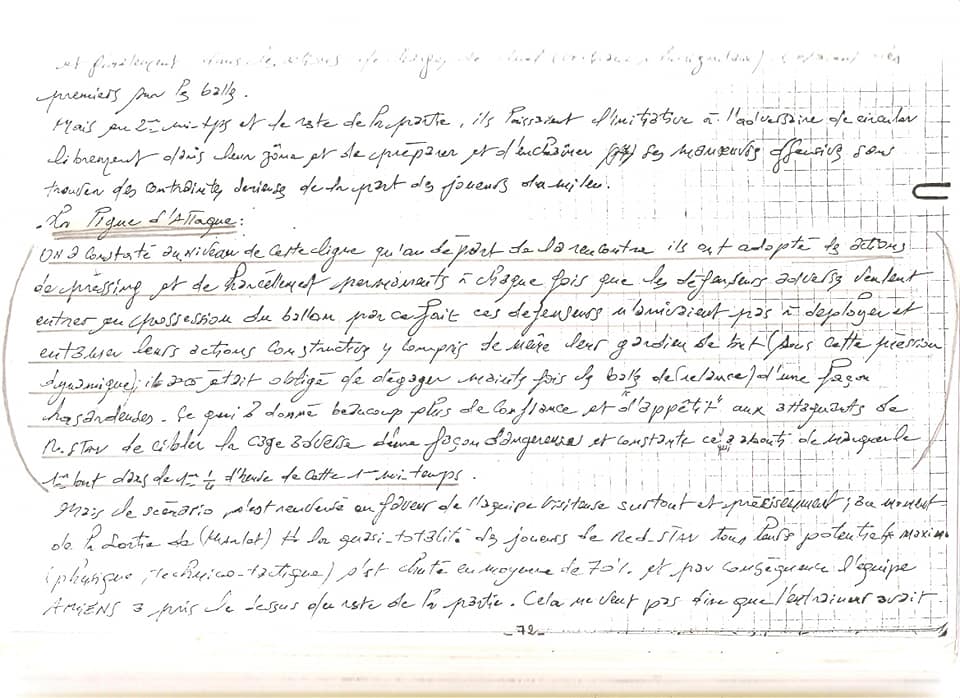 et finalement dans les actions de charges de
premiers sur la balle.
Mais en 2ème mi-tps et le reste de la partie, ils laissaient l'initiative à l'adversaire de circuler
librement dans leur zône et de préparer et d'enchaîner ses manoeuvres offensives sans
trouver des contraintes serieuse de la part des joueurs du milieu.
La ligne d'Attaque:
ON a constaté au niveau de cette ligne qu'au départ de la rencontre ils ont adopté des actions
de pressing et de harcèlement permanants à chaque fois que les défenseurs adverse veulent
entrer en possession du ballon par ce fait ces defenseurs n'arrivaient pas à deployer et
entamer leurs actions constructive y compris de même leur gardien de but (sous cette pression
dynamique); il était obligé de dégager maints fois la balle de (relance) d'une façon
hasardeuses. Ce qui a donné beaucoup plus de confiance et "d'appétit" aux attaquants de
R.STAR de cibler la cage adverse d'une façon dangereuse et constante ce qui a abouti de marquer le
1er but dans le 1er 1/4 d'heure de cette 1ère mi-temps.
Mais le scénario s'est renversé en faveur de l'équipe visiteuse surtout et précisemment; au moment
de la sortie de et la quasi-totalité des joueurs de Red-STAR tous leurs potentiels maxim
(physique, technico-tactique) s'est chuté en moyenne de 70% et par conséquence l'équipe
AMIENS a pris le dessus du reste de la partie. Cela ne veut pas dire que l'entraineur avait
-72-